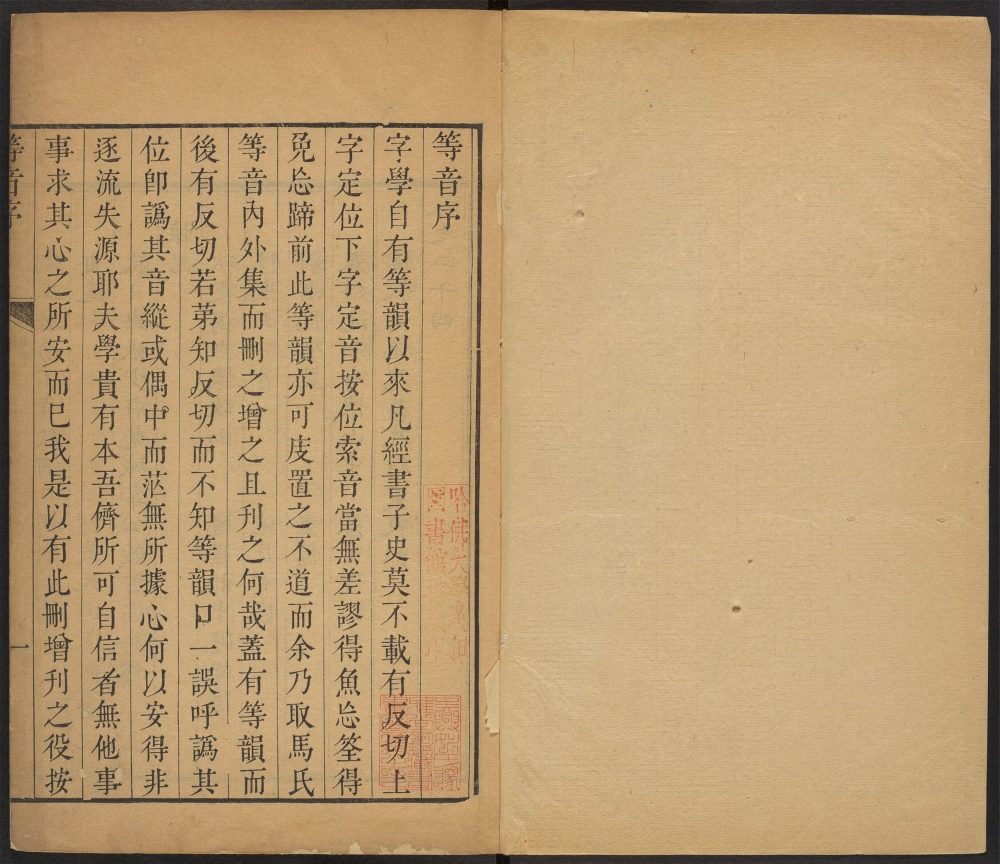 等音序
字學自有等韻以來凡經書子史莫不載有反切上
字定位下字定音按位索音當無差謬得魚忘筌得
免忘蹄前此等韻亦可庋置之不道而余乃取馬氏
等音內外集而刪之增之且刊之何哉蓋有等韻而
後有反切若苐知反切而不知等韻口一誤呼譌其
位卽譌其音縱或偶中而茫無所據心何以安得非
逐流失源耶夫學貴有本吾儕所可自信者無他事
事求其心之所安而已我是以有此刪增刊之役按
等音序
一
哈佛大學
書館